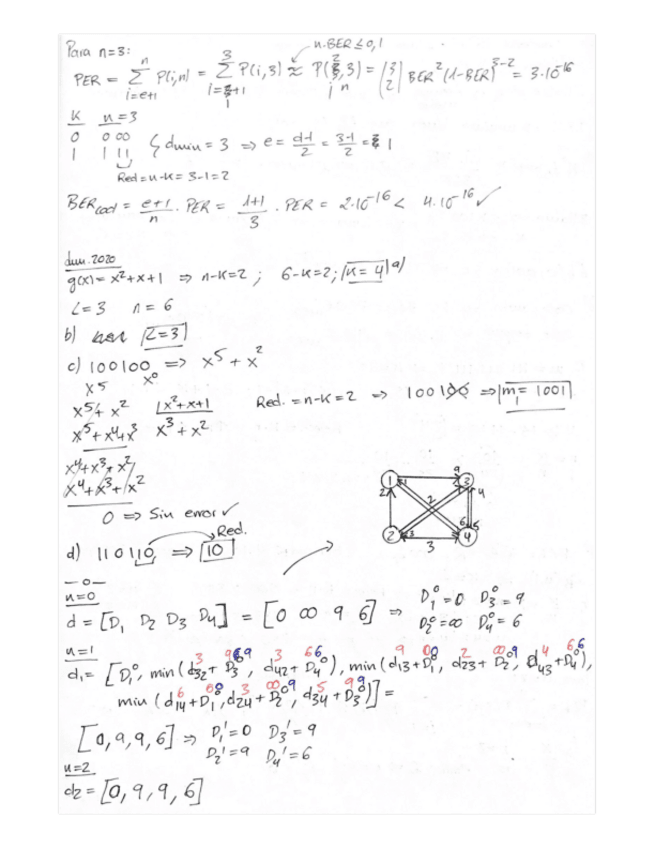 Para n=3:
n.BER ≤ 0,1
PER = Σ P(i,n) = Σ P(i,3) ≈ P(2,3) = (3 2) BER² (1-BER)^3-2 = 3·10^-16
i=e+1
K n=3
0 000
1 111
} dmin = 3 ⇒ e = d-1/2 = 3-1/2 = 1
Red = n-K = 3-1 = 2
BERcod = e+1/n · PER = 1+1/3 · PER = 2·10^-16 < 4·10^-16 ✓
2020
g(x) = x²+x+1 ⇒ n-K=2 ; 6-K=2 ; K=4 a)
L=3 n=6
b) L=3
c) 100100 ⇒ x⁵ + x²
x⁵ x⁰
x⁵+ x² x²+x+1
x⁵+x⁴+x³ x³+x²
x⁴+x³+x²
x⁴+x³+x²
0 ⇒ Sin error ✓
Red. = n-K = 2 ⇒ 100100 ⇒ m = 1001
Red.
d) 110110 ⇒ 10
1 9 3
2 1 4
2
6 5
2 3 3 4
—0—
n=0
d = [D₁ D₂ D₃ D₄] = [0 ∞ 9 6] ⇒ D₁⁰=0 D₃⁰=9
D₂⁰=∞ D₄⁰=6
n=1
d₁ = [D₁⁰, min(d₃₂+D₃⁰, d₄₂+D₄⁰), min(d₁₃+D₁⁰, d₂₃+D₂⁰, d₄₃+D₄⁰),
min(d₁₄+D₁⁰, d₂₄+D₂⁰, d₃₄+D₃⁰)] =
[0,9,9,6] ⇒ D₁'=0 D₃'=9
D₂'=9 D₄'=6
n=2
d₂ = [0,9,9,6]